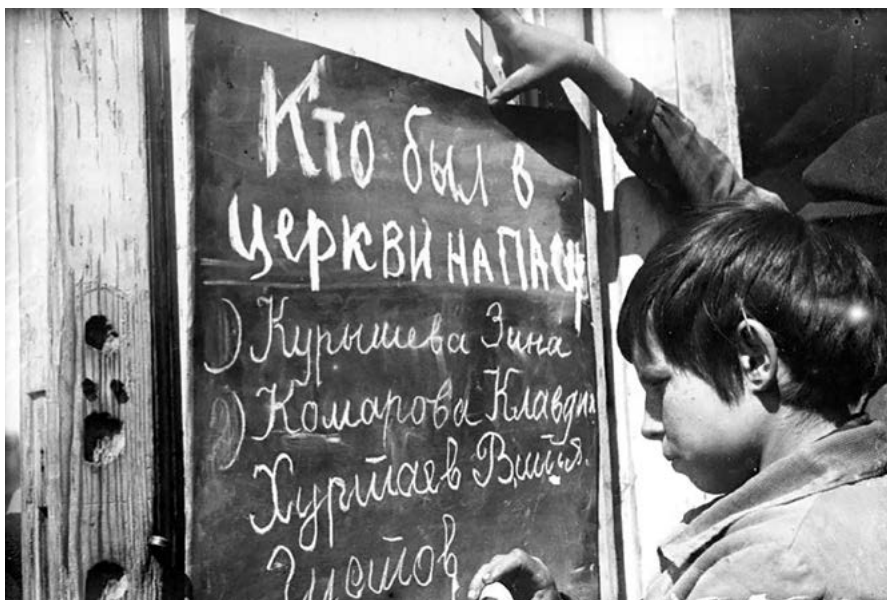 Кто был в
церкви НА ПАСХЕ
1) Курышева Зина
2) Комарова Клавдия
Хуртаев Витя.